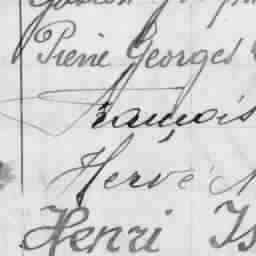 Pierre Georges
François
Hervé
Henri Is